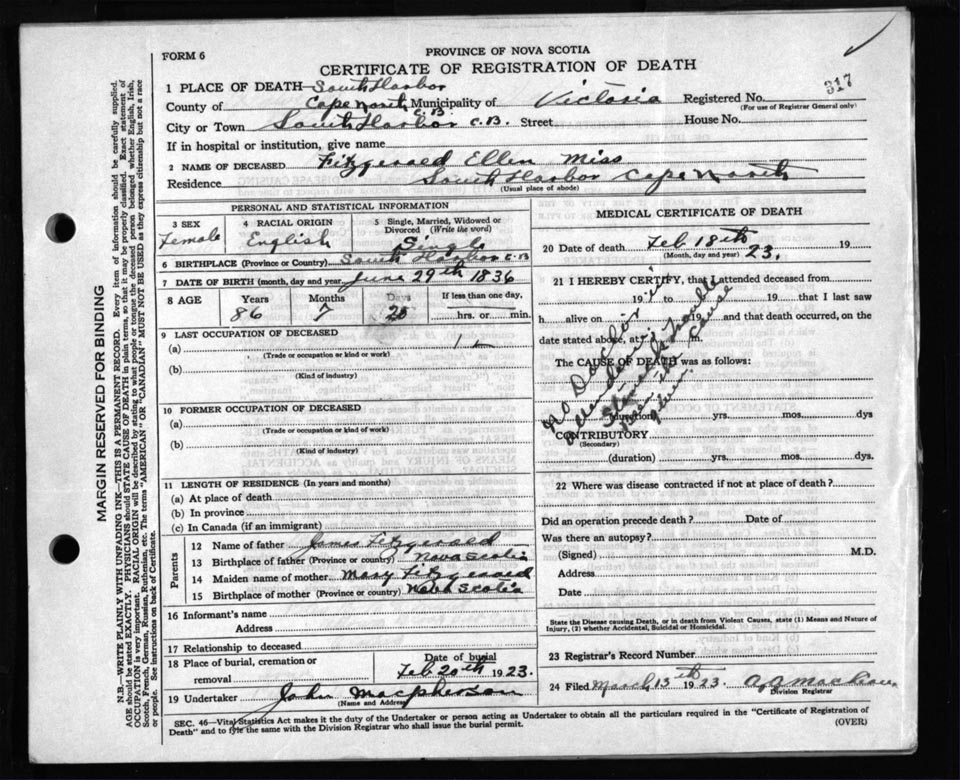 FORM 6
PROVINCE OF NOVA SCOTIA
CERTIFICATE OF REGISTRATION OF DEATH
317
1 PLACE OF DEATH— South Harbor
County of Cape North C.B. Municipality of Victoria Registered No.
(For use of Registrar General only)
City or Town South Harbor C.B. Street House No.
If in hospital or institution, give name
2 NAME OF DECEASED Fitzgerald Ellen Miss
Residence South Harbor Cape North
(Usual place of abode)
PERSONAL AND STATISTICAL INFORMATION
3 SEX 4 RACIAL ORIGIN 5 Single, Married, Widowed or Divorced (Write the word)
Female English Single
6 BIRTHPLACE (Province or Country) South Harbor C.B
7 DATE OF BIRTH (month, day and year) June 29th 1836
8 AGE Years Months Days If less than one day,
86 7 20 hrs. or min.
9 LAST OCCUPATION OF DECEASED
(a)
(Trade or occupation or kind of work)
(b)
(Kind of industry)
10 FORMER OCCUPATION OF DECEASED
(a)
(Trade or occupation or kind of work)
(b)
(Kind of industry)
11 LENGTH OF RESIDENCE (In years and months)
(a) At place of death
(b) In province
(c) In Canada (if an immigrant)
Parents
12 Name of father James Fitzgerald
13 Birthplace of father (Province or country) Nova Scotia
14 Maiden name of mother Mary Fitzgerald
15 Birthplace of mother (Province or country) Nova Scotia
16 Informant's name
Address
17 Relationship to deceased
18 Place of burial, cremation or removal
Date of burial
Feb 20th 1923.
19 Undertaker John Macpherson
(Name and Address)
MEDICAL CERTIFICATE OF DEATH
20 Date of death Feb 18th 23. 19
(Month, day and year)
21 I HEREBY CERTIFY, that I attended deceased from
19 to 19 that I last saw
h alive on 19 and that death occurred, on
date stated above, at m.
The CAUSE OF DEATH was as follows:
No Doctor in
the Cause
given
(duration) yrs. mos. dys
CONTRIBUTORY
(Secondary)
(duration) yrs. mos. dys.
22 Where was disease contracted if not at place of death?
Did an operation precede death? Date of
Was there an autopsy?
(Signed) M.D.
Address
Date
State the Disease causing Death, or in death from Violent Causes, state (1) Means and Nature of
Injury, (2) whether Accidental, Suicidal or Homicidal.
23 Registrar's Record Number
24 Filed March 13th 1923.
Division Registrar
SEC. 46—Vital Statistics Act makes it the duty of the Undertaker or person acting as Undertaker to obtain all the particulars required in the "Certificate of Registration of
Death" and to file the same with the Division Registrar who shall issue the burial permit.
(OVER)
MARGIN RESERVED FOR BINDING
N.B.—WRITE PLAINLY WITH UNFADING INK—THIS IS A PERMANENT RECORD. Every item of information should be carefully supplied.
AGE should be stated EXACTLY. PHYSICIANS should STATE CAUSE OF DEATH in plain terms, so that it may be properly classified. Exact statement of
OCCUPATION is very important. RACIAL ORIGIN will be described by stating to what people or tongue the deceased person belonged whether English, Irish,
Scotch, French, German, Russian, Ruthenian, etc. The terms "AMERICAN" OR "CANADIAN" MUST NOT BE USED as they express citizenship but not a race
or people. See instructions on back of Certificate.